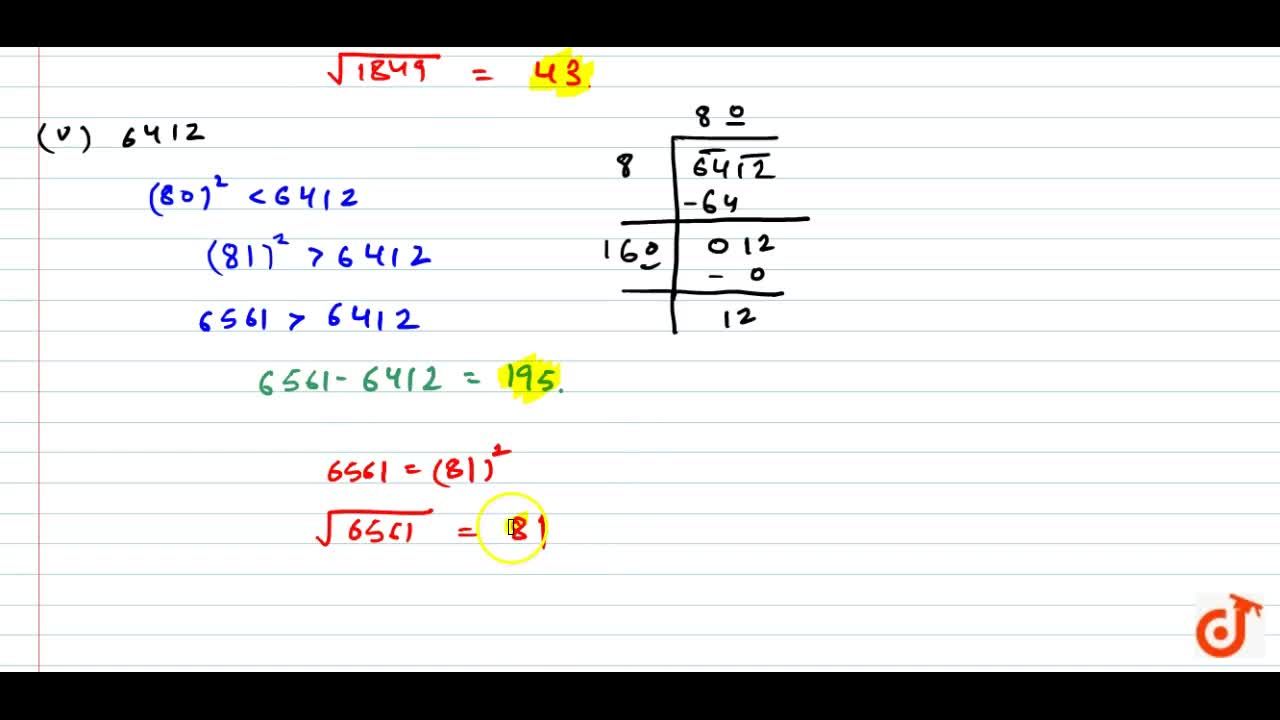 √1849 = 43.
(v) 6412
(80)² < 6412
(81)² > 6412
6561 > 6412
6561 - 6412 = 195.
6561 = (81)²
√6561 = 81
80
8 6412
-64
160 012
- 0
12